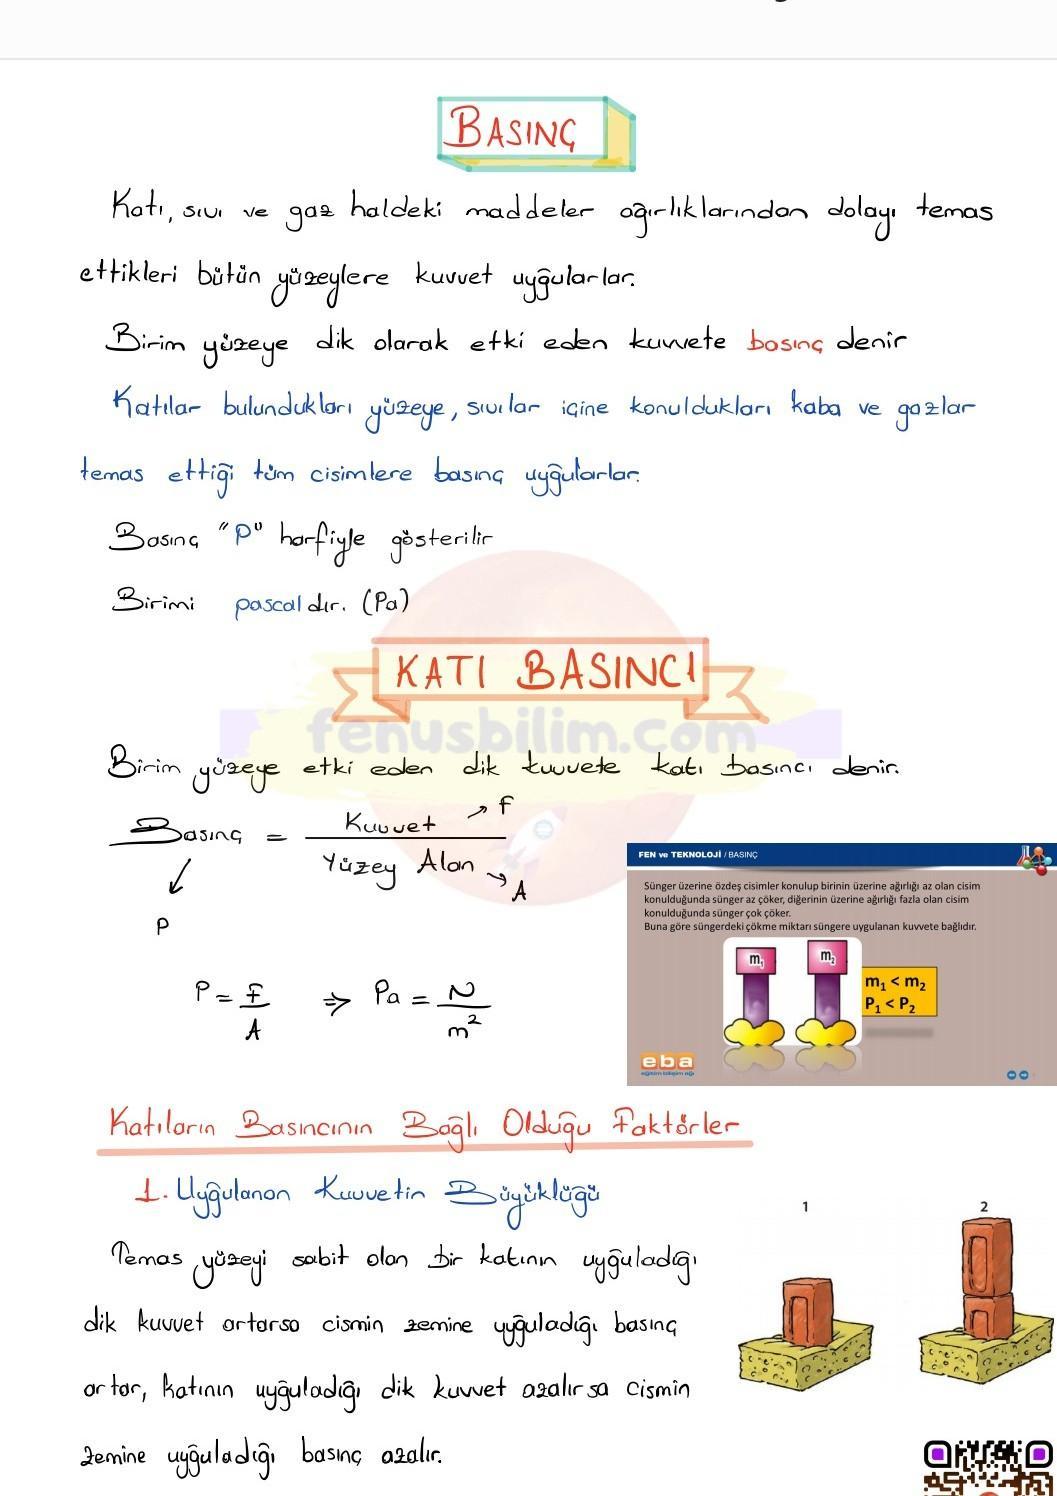 BASINÇ
Katı, sıvı ve gaz haldeki maddeler ağırlıklarından dolayı temas
ettikleri bütün yüzeylere kuvvet uyğularlar.
Birim yüzeye dik olarak etki eden kuvvete basınç denir
Katılar bulundukları yüzeye, sıvılar içine konuldukları kaba ve gazlar
temas ettiği tüm cisimlere basınç uyğularlar.
Basınç "P" harfiyle gösterilir
Birimi pascaldır. (Pa)
KATI BASINCI
fenusbilim.com
Birim yüzeye etki eden dik kuvvete katı basıncı denir.
Basınç = Kuvvet / Yüzey Alan
F
A
P
P = F / A ⇒ Pa = N / m²
FEN ve TEKNOLOJİ / BASINÇ
Sünger üzerine özdeş cisimler konulup birinin üzerine ağırlığı az olan cisim
konulduğunda sünger az çöker, diğerinin üzerine ağırlığı fazla olan cisim
konulduğunda sünger çok çöker.
Buna göre süngerdeki çökme miktarı süngere uygulanan kuvvete bağlıdır.
m₁ m₂
m₁ < m₂
P₁ < P₂
eba
eğitim bilişim ağı
Katıların Basıncının Bağlı Olduğu Faktörler
1. Uyğulanan Kuvvetin Büyüklüğü
Temas yüzeyi sabit olan bir katının uyğuladığı
dik kuvvet artarsa cismin zemine uyğuladığı basınç
artar, katının uyğuladığı dik kuvvet azalırsa cismin
zemine uyğuladığı basınç azalır.
1 2